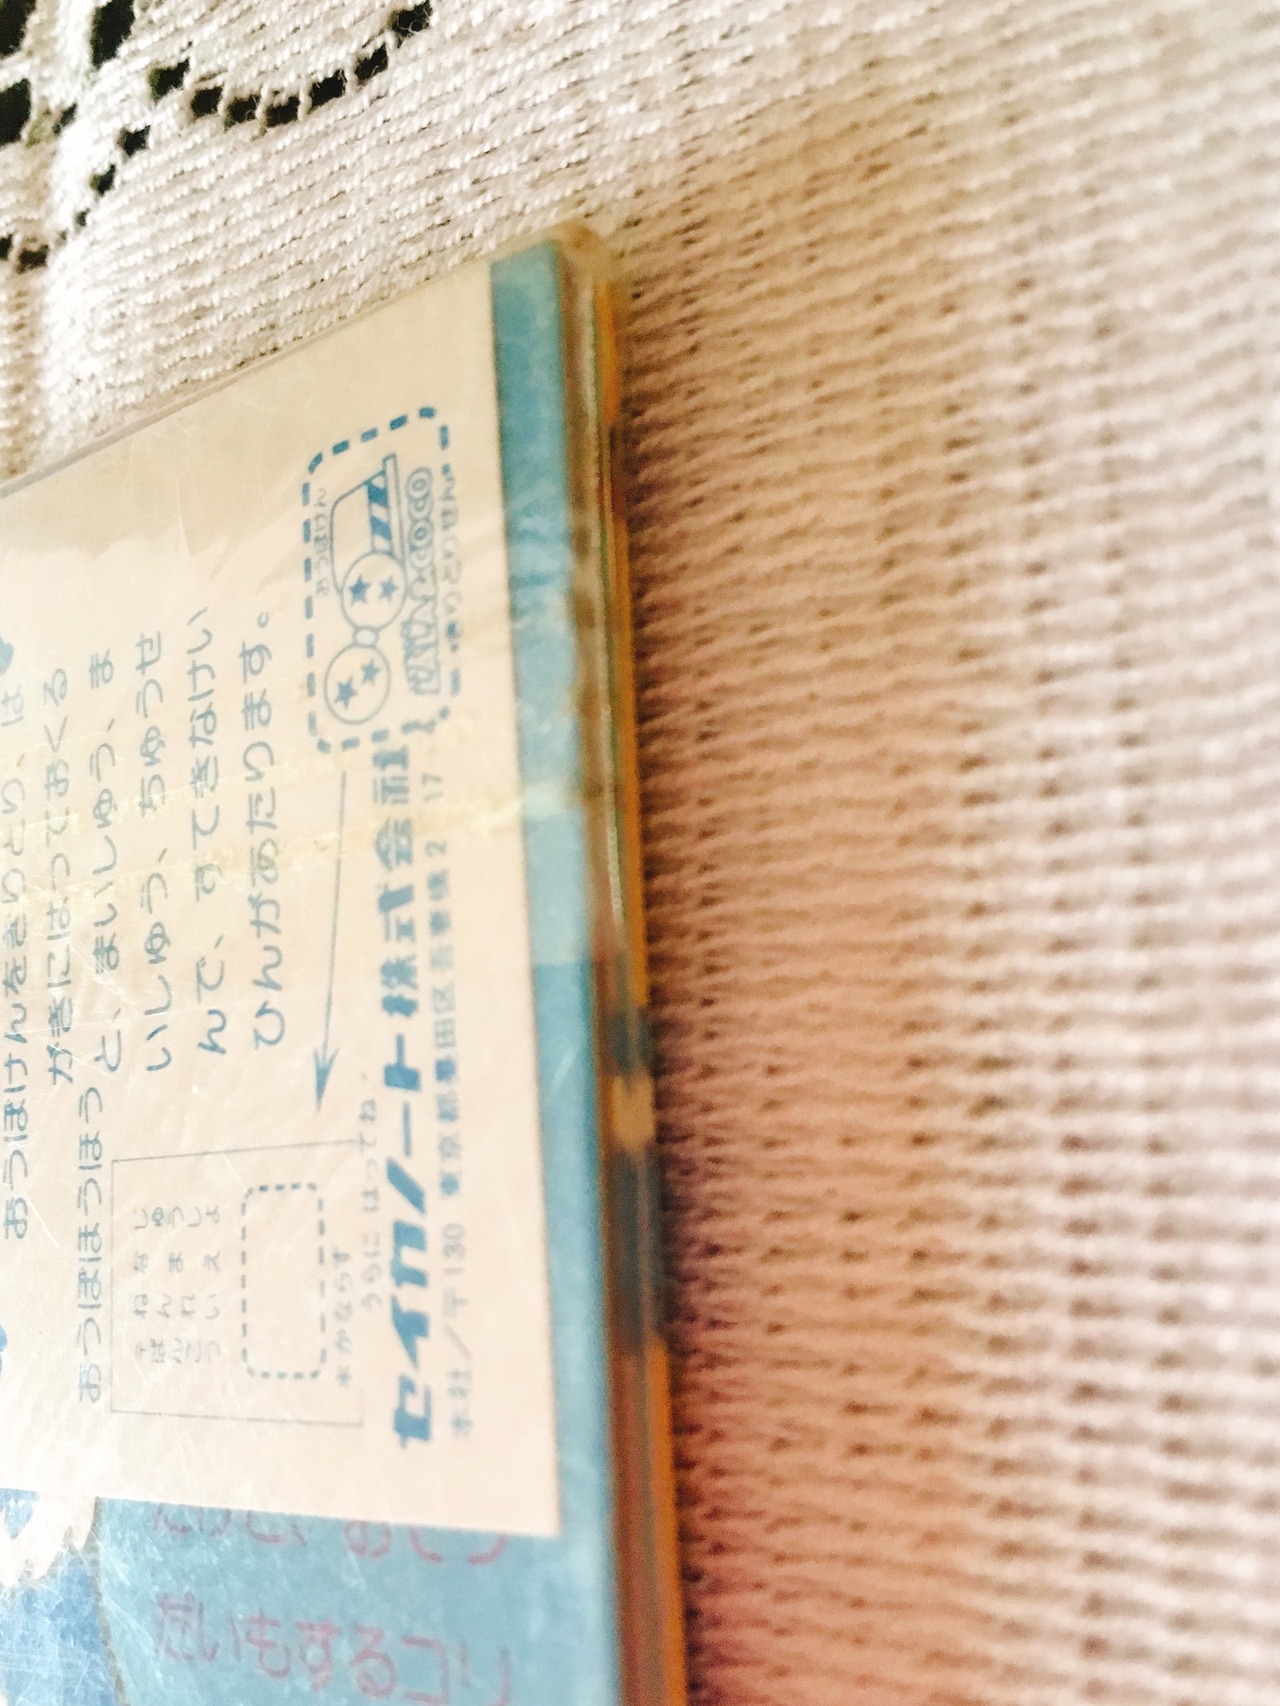 おうぼけんをきりとり、は
がきにはっておくる
おうぼほうほう
と、まいしゅう、ま
いしゅう、ちゅうせ
んで、すてきなけい
ひんがあたります。
おうぼけん
きりとりせん
じゅうしょ
なまえ
ねんれい
※かならず
うらに はってね。
セイカノート株式会社
本社／〒130 東京都墨田区吾妻橋2 17 1
だいもするコリ